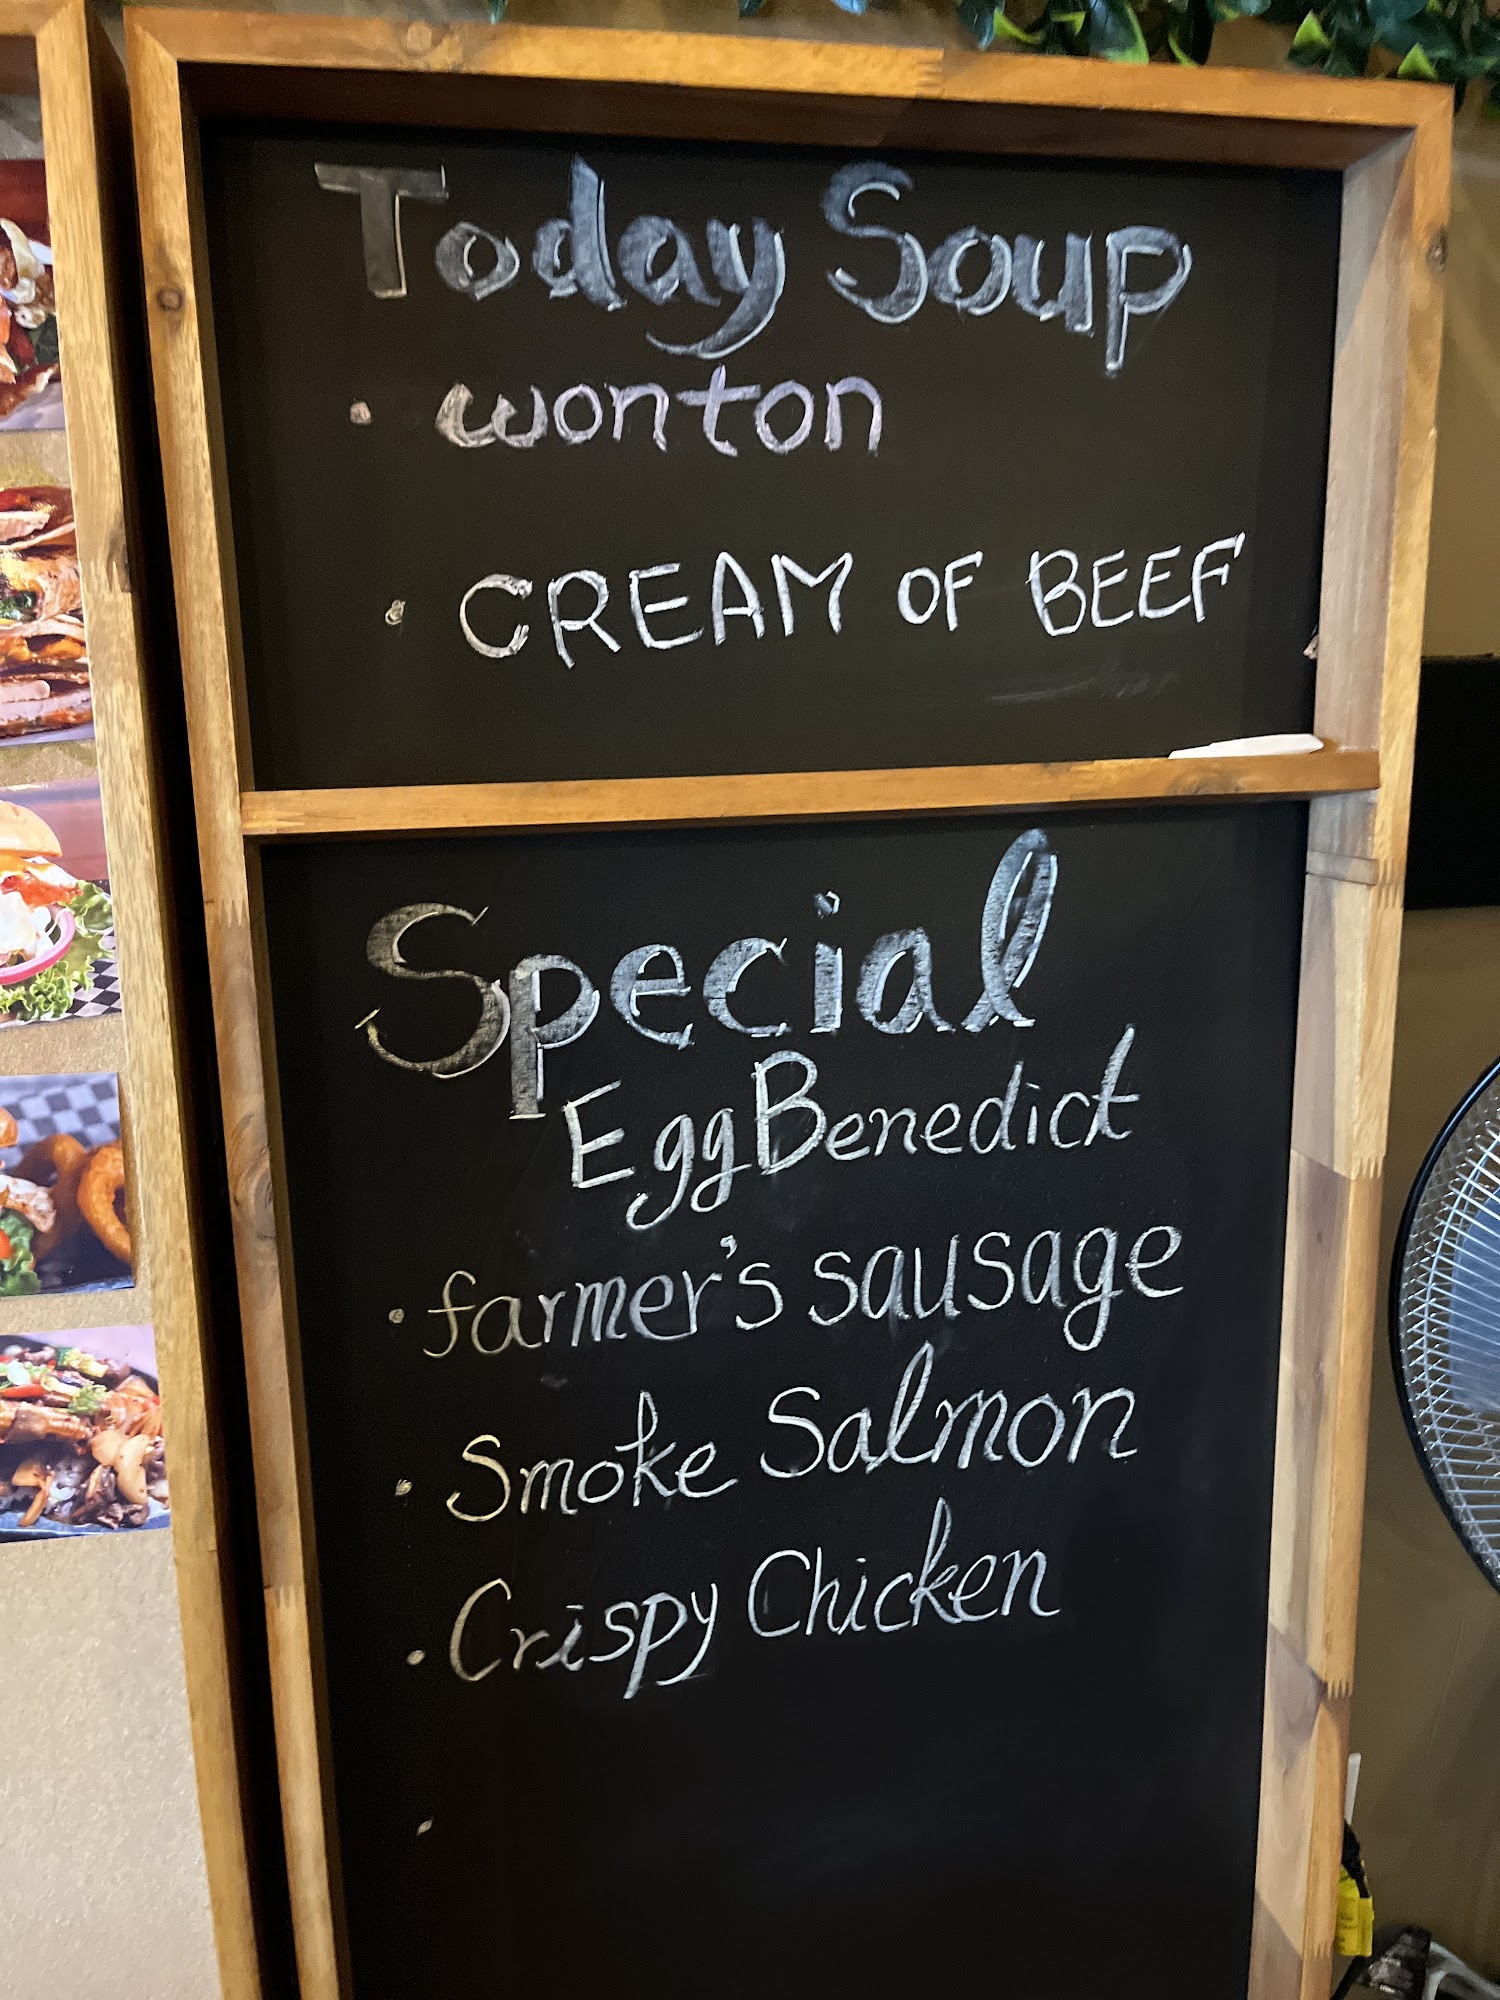 Today Soup
• wonton
• CREAM OF BEEF
Special
Egg Benedict
• farmer's sausage
• Smoke Salmon
• Crispy Chicken
•